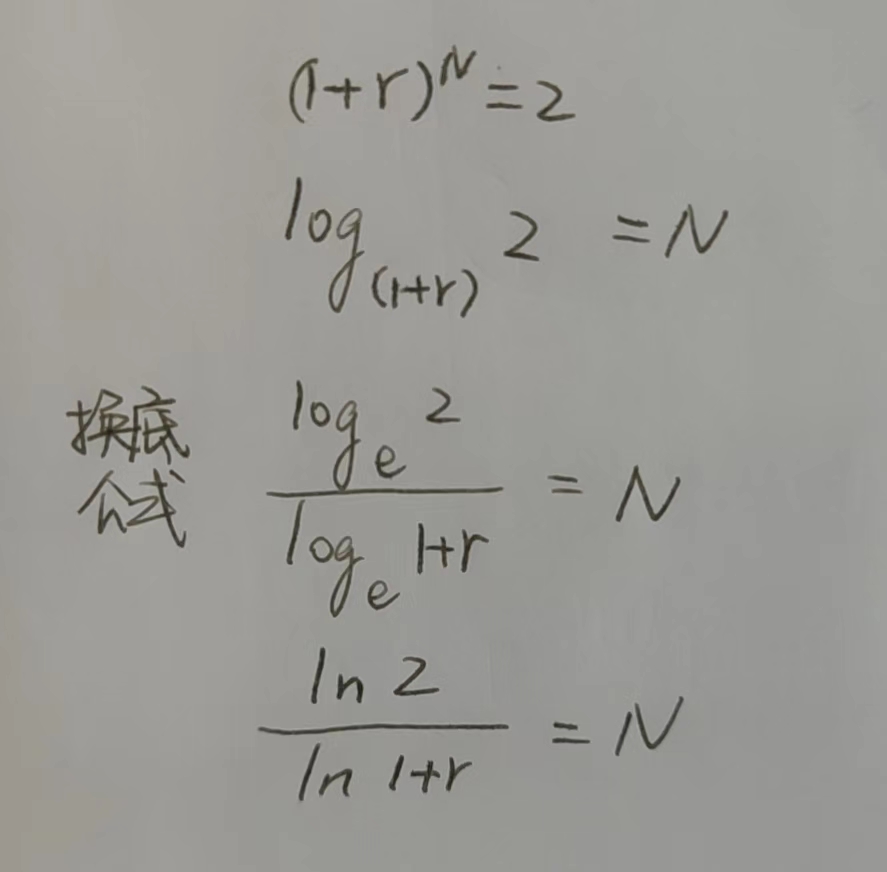 (1+r)^N = 2
log_(1+r) 2 = N
换底
公式
log_e 2 / log_e 1+r = N
ln 2 / ln 1+r = N